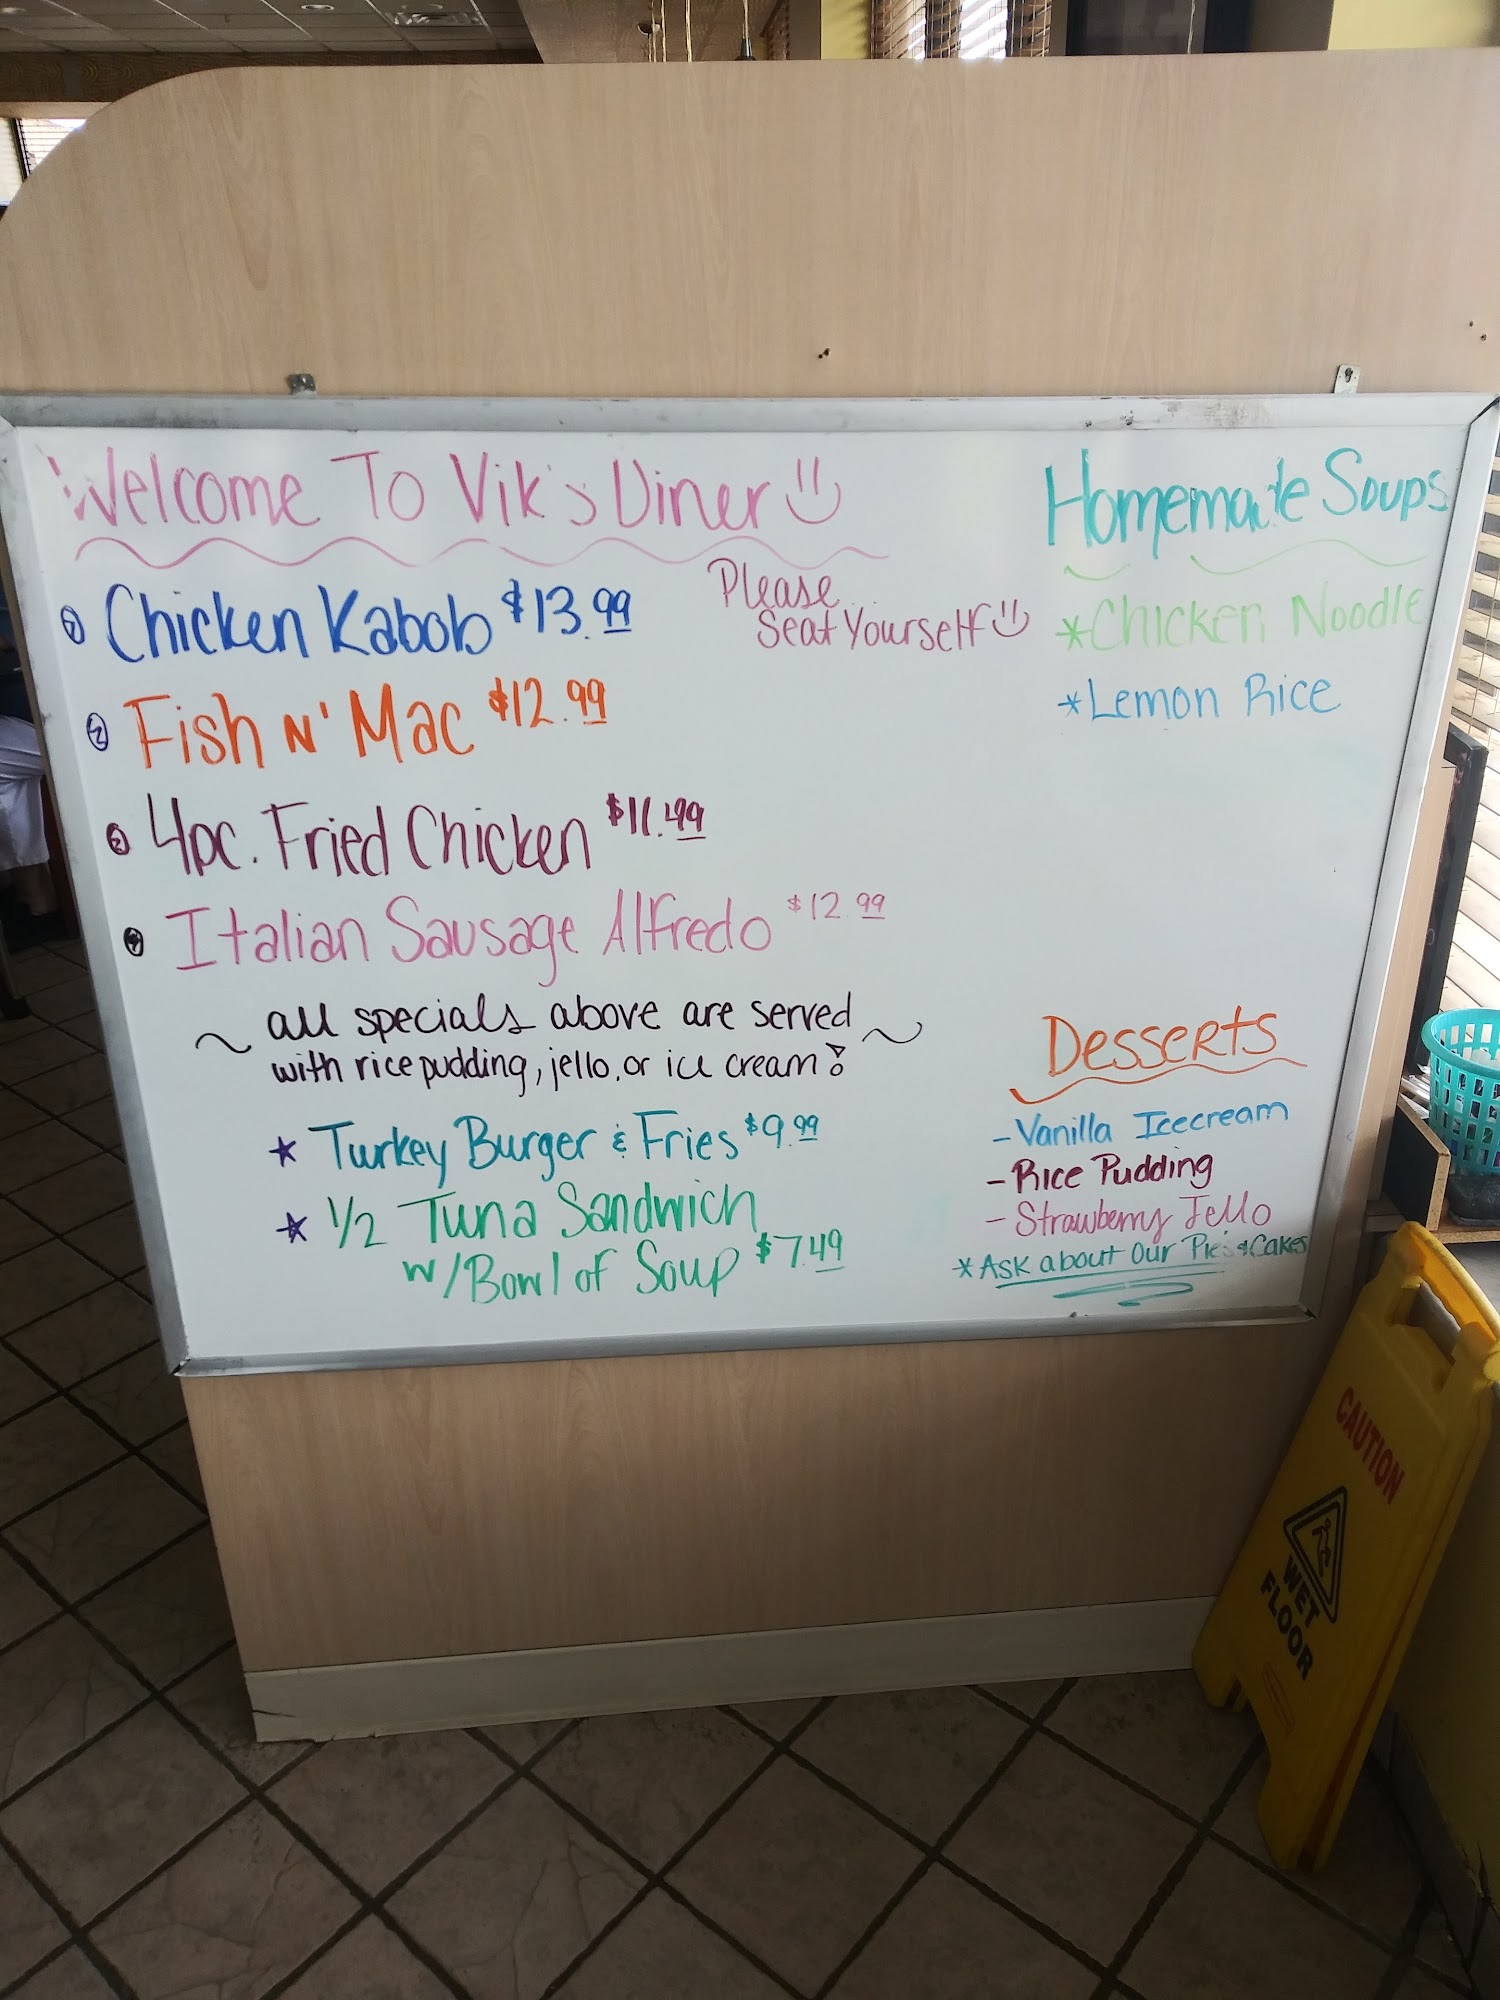 Welcome To Vik's Diner
Please
Seat Yourself
1 Chicken Kabob $13.99
2 Fish N' Mac $12.99
3 4pc. Fried Chicken $11.49
4 Italian Sausage Alfredo $12.99
~ all specials above are served ~
with rice pudding, jello, or ice cream!
* Turkey Burger & Fries $9.99
* 1/2 Tuna Sandwich
w/Bowl of Soup $7.49
Homemade Soups
*Chicken Noodle
*Lemon Rice
Desserts
-Vanilla Icecream
-Rice Pudding
-Strawberry Jello
*Ask about Our Pie's & Cakes
CAUTION
WET
FLOOR